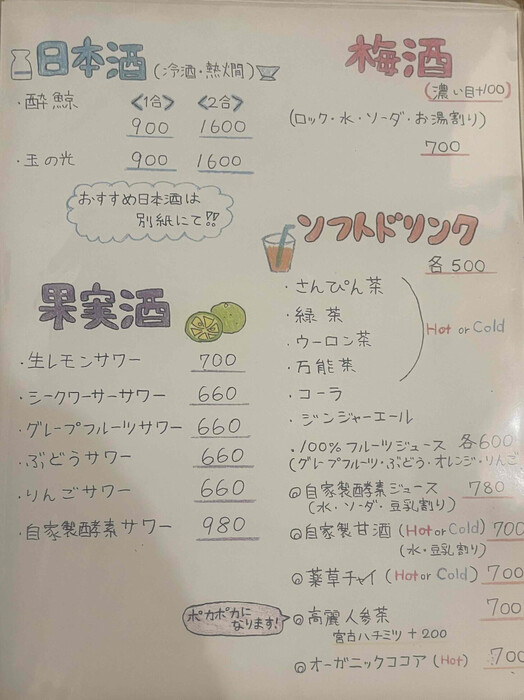 日本酒 (冷酒・熱燗)
<1合> <2合>
・酔鯨 900 1600
・玉の光 900 1600
おすすめ日本酒は
別紙にて!!
果実酒
・生レモンサワー 700
・シークワーサーサワー 660
・グレープフルーツサワー 660
・ぶどうサワー 660
・りんごサワー 660
・自家製酵素サワー 980
梅酒
(濃い目+100)
(ロック・水・ソーダ・お湯割り)
700
ソフトドリンク
各500
・さんぴん茶
・緑茶
・ウーロン茶
・万能茶
Hot or Cold
・コーラ
・ジンジャーエール
・100%フルーツジュース 各600
(グレープフルーツ・ぶどう・オレンジ・りんご
◎自家製酵素ジュース 780
(水・ソーダ・豆乳割り)
◎自家製甘酒 (Hot or Cold) 700
(水・豆乳割り)
◎薬草チャイ (Hot or Cold) 700
ポカポカに
なります!
◎高麗人参茶 700
宮古ハチミツ +200
◎オーガニックココア (Hot) 700